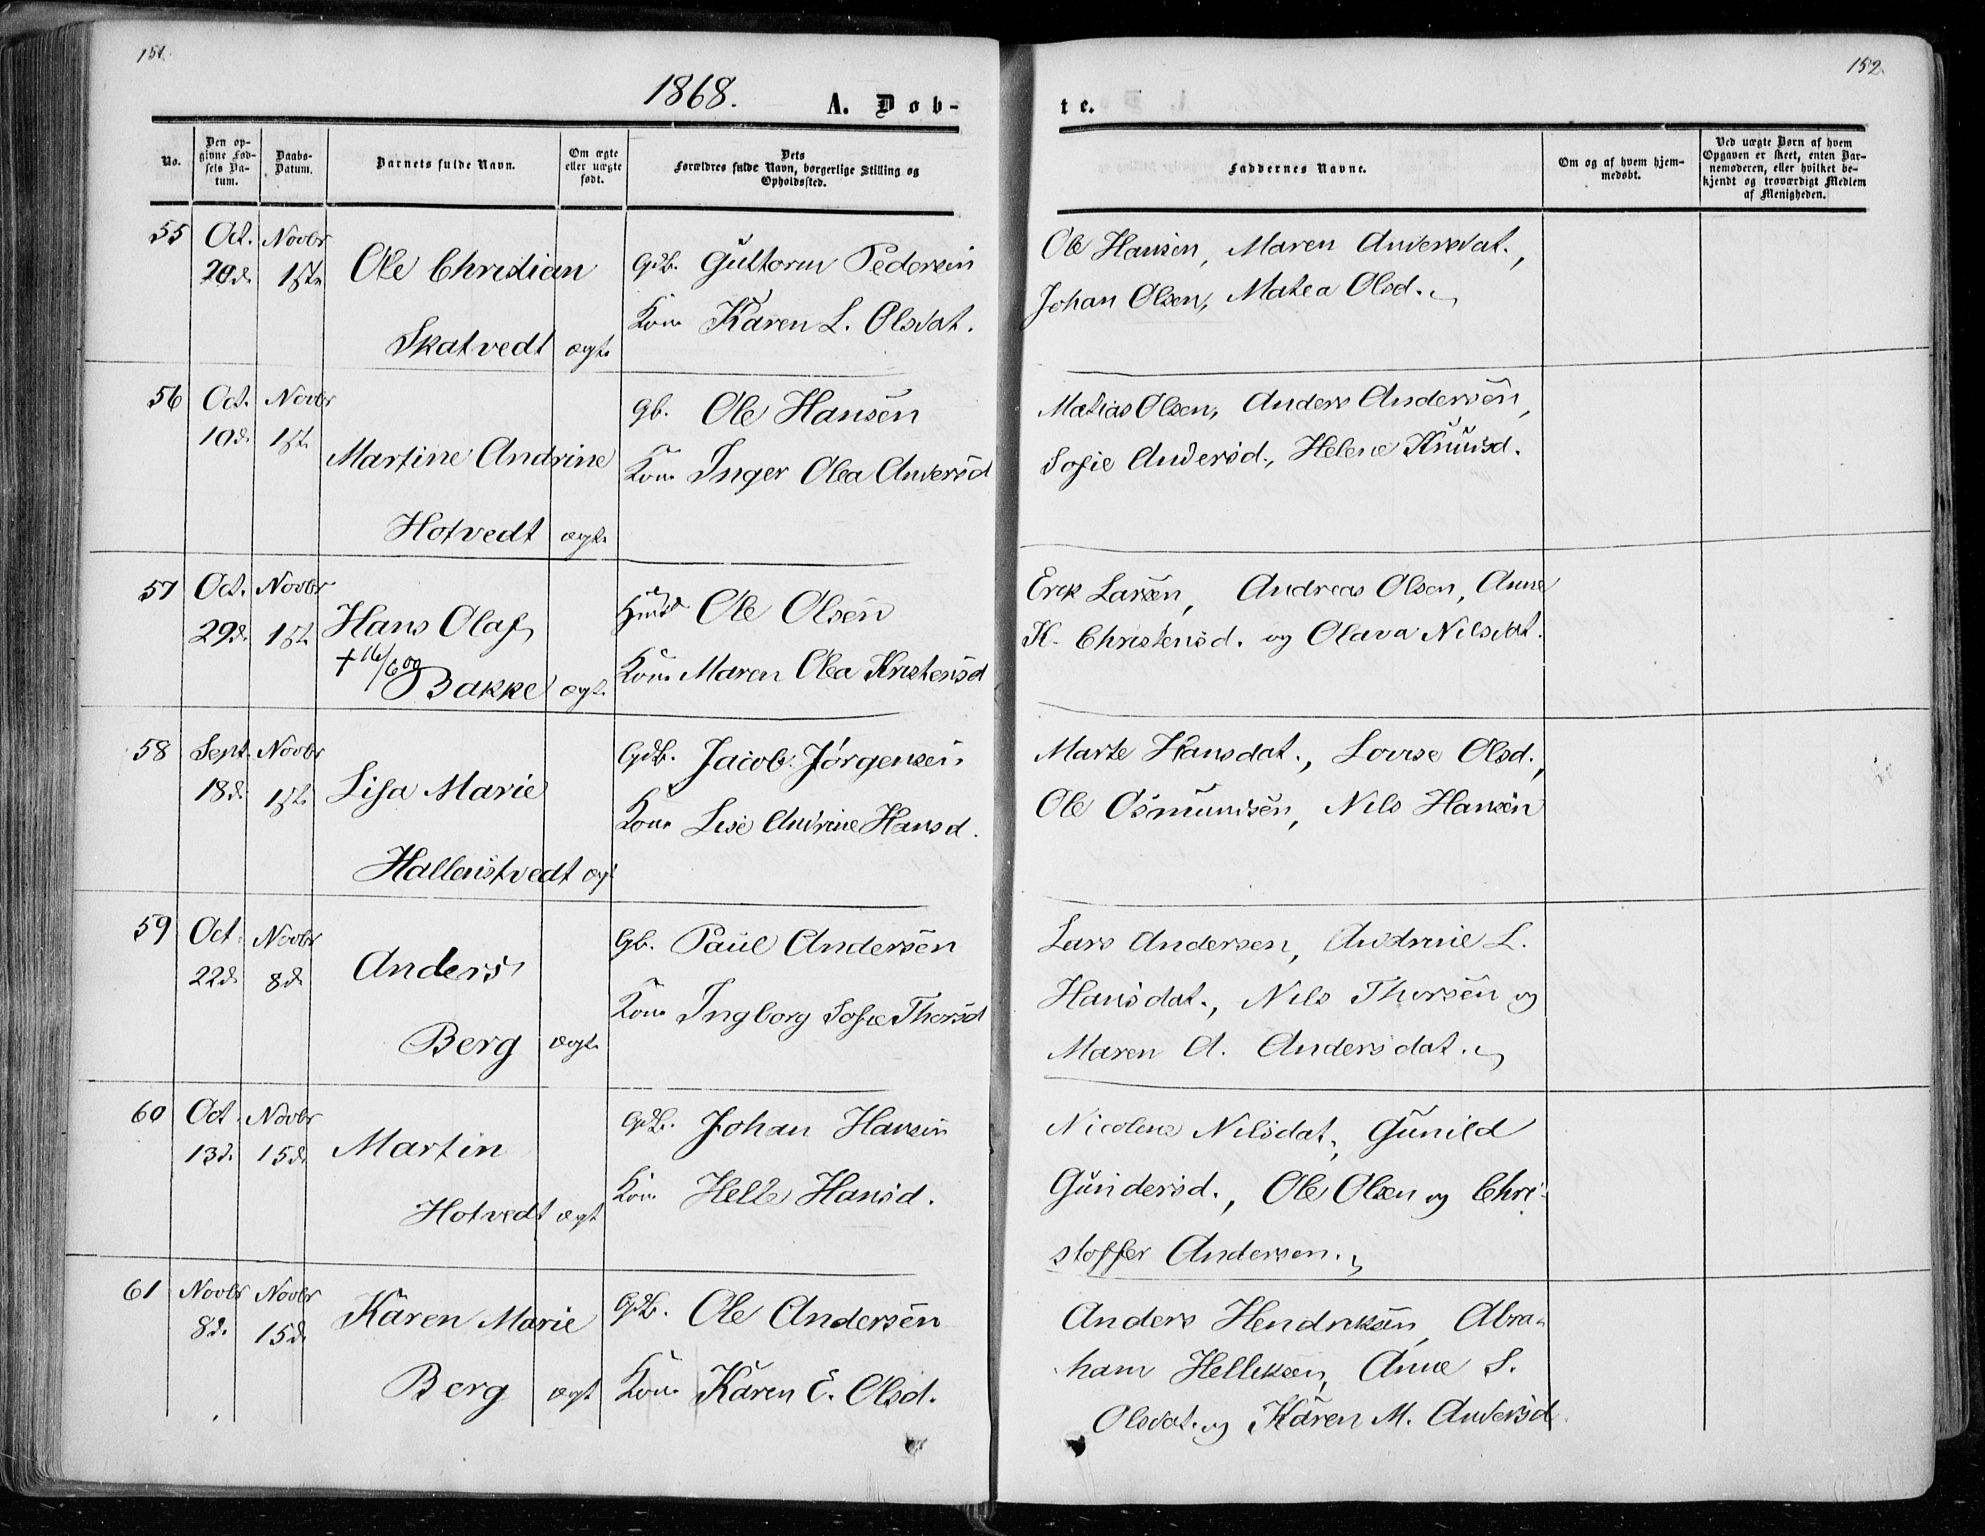 151.
152.
1868.
A. Døb-
te.
No.
Den op-
givne Fød-
sels Da-
tum.
Daabs-
Datum.
Barnets fulde Navn.
Om ægte
eller uægte
født.
Dets
Forældres fulde Navn, borgerlige Stilling og
Opholdssted.
Faddernes Navne.
Om og af hvem hjem-
medøbt.
Ved uægte Børn af hvem
Opgaven er skeet, enten Bar-
nemoderen, eller hvilket be-
kjendt og troværdigt Medlem
af Menigheden.
55 Oct. Novbr
20d. 1ste
Ole Christian
Skatvedt ægt.
Gdb. Guttorm Pedersen
Kone Karen L. Olsdat.
Ole Hansen, Maren Andersdat.,
Johan Olsen, Matea Olsd.
56 Oct. Novbr
10d. 1st.
Martine Andrine
Hotvedt ægt.
gb. Ole Hansen
Kone Inger Olea Andersd
Matias Olsen, Anders Andersen,
Sofie Andersd., Helene Knutsd.
57 Oct. Novbr
29d. 1st.
Hans Olaf
+ 16/6 09
Bakke ægt.
Ole Olsen
Kone Maren Olea Kristensd
Erik Larsen, Andreas Olsen, Anne
K. Christensd. og Olava Nilsdat.
58 Sept. Novbr
18d. 1st.
Lisa Marie
Hallenstvedt ægt
Gdb. Jacob Jørgensen
Kone Lise Andrine Hansd.
Marte Hansdat., Lovise Olsd.,
Ole Osmundsen, Nils Hansen
59 Oct. Novbr
22d. 8d.
Anders
Berg ægt.
Gb. Paul Andersen
Kone Ingborg Sofie Thorsd
Lars Andersen, Andrine L.
Hansdat., Nils Thorsen og
Maren A. Andersdat.
60 Oct. Novbr
13d. 15d.
Martin
Hotvedt ægt
Gdb. Johan Hansen
Kone Helle Hansd.
Nicoline Nilsdat., Gunild
Gundersd., Ole Olsen og Chri-
stoffer Andersen.
61 Novbr Novbr
8d. 15d.
Karen Marie
Berg ægt
Gdb. Ole Andersen
Kone Karen E. Olsd.
Anders Hendriksen, Abra-
ham Helliksen, Anne S.
Olsdat. og Karen M. Andersd